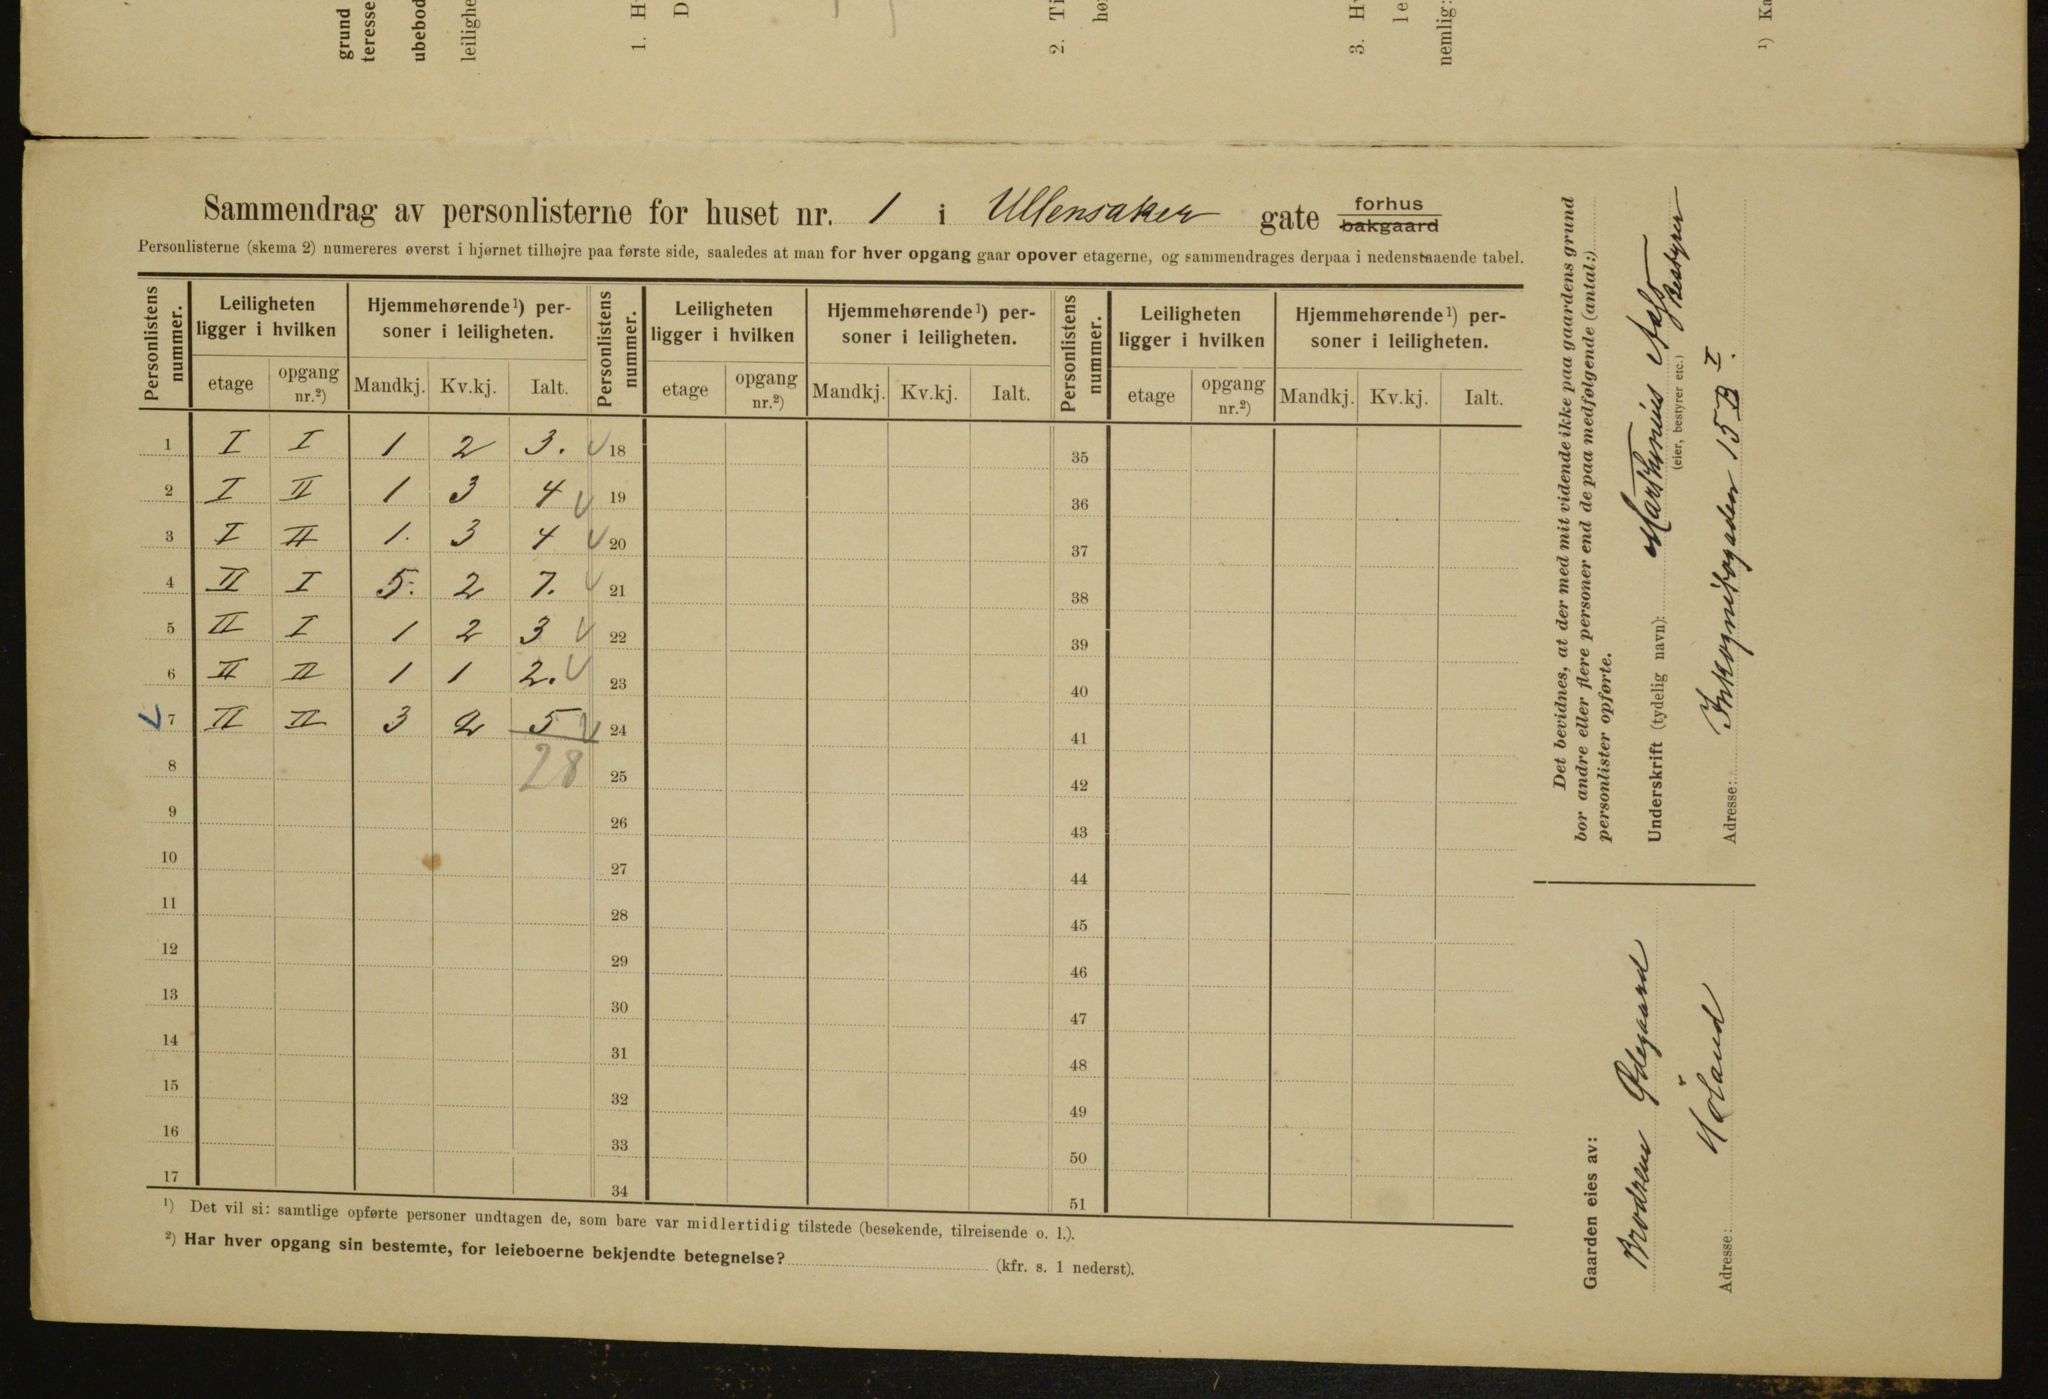 grund
teresse
ubebod
leilighe
1. H
D
2. Ti
hø
3. H
le
nemlig:
¹) Ka
Sammendrag av personlisterne for huset nr. 1 i Ullensaker gate forhus
bakgaard
Personlisterne (skema 2) numereres øverst i hjørnet tilhøjre paa første side, saaledes at man for hver opgang gaar opover etagerne, og sammendrages derpaa i nedenstaaende tabel.
Personlistens nummer. Leiligheten ligger i hvilken Hjemmehørende¹) personer i leiligheten. Personlistens nummer. Leiligheten ligger i hvilken Hjemmehørende¹) personer i leiligheten. Personlistens nummer. Leiligheten ligger i hvilken Hjemmehørende¹) personer i leiligheten.
etage opgang nr.²) Mandkj. Kv.kj. Ialt. etage opgang nr.²) Mandkj. Kv.kj. Ialt. etage opgang nr.²) Mandkj. Kv.kj. Ialt.
1 I I 1 2 3. 18 35
2 I II 1 3 4 19 36
3 I II 1. 3 4 20 37
4 II I 5. 2 7. 21 38
5 II I 1 2 3 22 39
6 II II 1 1 2. 23 40
7 II II 3 2 5 24 41
8 28 25 42
9 26 43
10 27 44
11 28 45
12 29 46
13 30 47
14 31 48
15 32 49
16 33 50
17 34 51
¹) Det vil si: samtlige opførte personer undtagen de, som bare var midlertidig tilstede (besøkende, tilreisende o. l.).
²) Har hver opgang sin bestemte, for leieboerne bekjendte betegnelse? (kfr. s. 1 nederst).
Det bevidnes, at der med mit vidende ikke paa gaardens grund
bor andre eller flere personer end de paa medfølgende (antal:)
personlister opførte.
Underskrift (tydelig navn): Aass
Bestyrer
(eier, bestyrer etc.)
Adresse: Inkognitogaden 15 B I.
Gaarden eies av:
Brødrene Ødegaard
Adresse: Høland